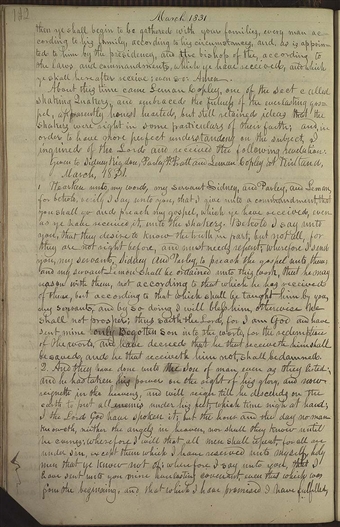 112
March 1831
then ye shall begin to be gathered with your families, every man ac-
cording to his family, according to his circumstances, and as is appoin-
ted to him by the presidency, and the bishop of the, according to
the laws and commandments, which ye have received, and which
ye shall hereafter receive; even so: Amen.
About this time came Leman Copley, one of the sect called
Shaking Quakers, and embraced the fulness of the everlasting gos-
pel, apparently honest hearted, but still retained ideas that the
shakers were right in some particulars of their faith; and in
order to have more perfect understanding on the subject, I
inquired of the Lord and received the following revelation.
Given to Sidney Rigdon, Parley P. Pratt and Leman Copley, at Kirtland,
March, 1831.
1. Hearken unto my words, my servant Sidney, and Parley, and Leman,
for behold, verily I say unto you, that I give unto you a commandment, that
you shall go and preach my gospel, which ye have received, even
as ye have received it, unto the shakers. Behold I say unto
you, that they desire to know the truth in part, but not all, for
they are not right before me, and must needs repent; wherefore I send
you, my servants, Sidney and Parley, to preach the gospel unto them;
and my servant Leman shall be ordained unto this work, that he may
reason with them, not according to that which he has received
of them, but according to that which shall be taught him by you,
my servants, and by so doing I will bless him, otherwise he
shall not prosper; thus saith the Lord, for I am God and have
sent mine only begotten Son into the world, for the redemption
of the world, and have decreed that he that receiveth him shall
be saved, and he that receiveth him not, shall be damned.
2. And they have done unto the Son of man even as they listed;
and he has taken his power on the right hand of his glory, and now
reigneth in the heavens, and will reign till he descends on the
earth to put all enemies under his feet; which time is nigh at hand;
I the Lord God have spoken it; but the hour and the day no man
knoweth, neither the angels in heaven, nor shall they know until
he comes; wherefore I will that all men shall repent, for all are
under sin, except them which I have reserved unto myself, holy
men that ye know not of; wherefore I say unto you, that I
have sent unto you mine everlasting covenant, even that which was
from the beginning, and that which I have promised I have fulfilled,